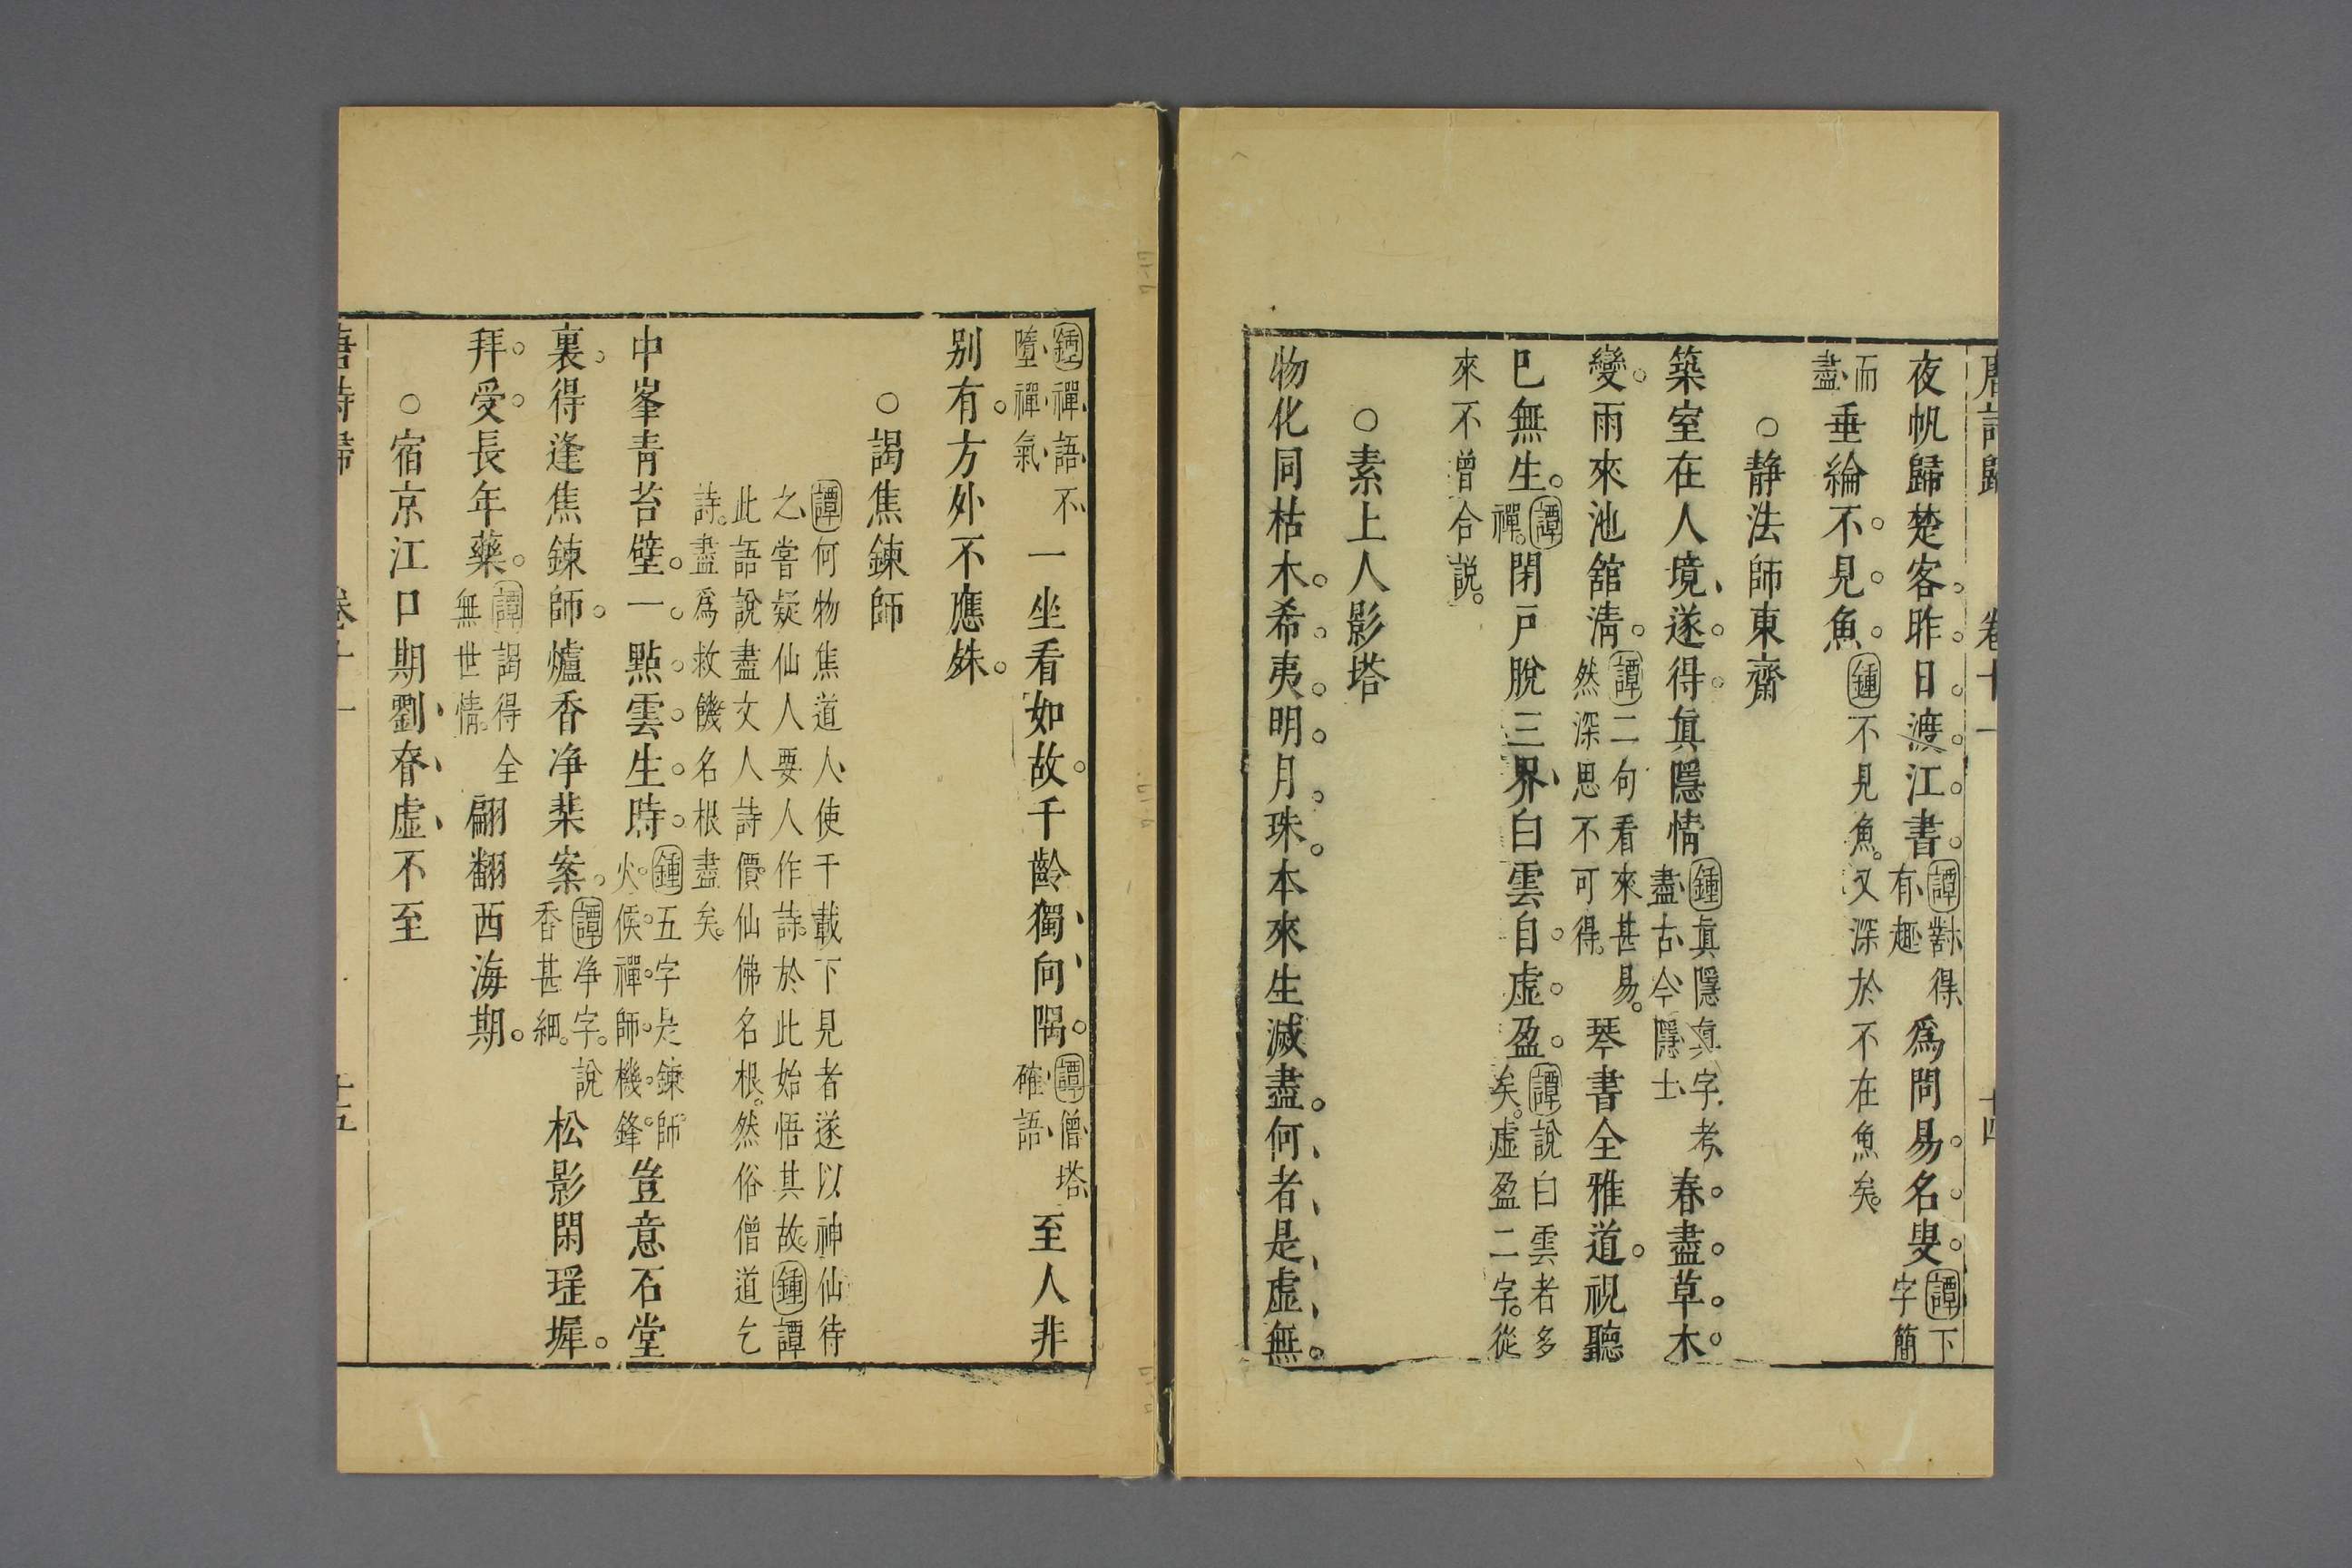 唐詩歸 卷十一 十四
夜帆歸楚客。昨日渡江書。譚對得有趣為問易名叟。譚下字簡
而盡垂綸不見魚。鍾不見魚。又深於不在魚矣。
○静法師東齋
築室在人境、遂得真隱情鍾真隱真字考盡古今隱士春盡草木
變。雨來池舘清。譚二句看來甚易。然深思不可得。琴書全雅道。視聽
已無生。譚禪。閉戸脫三界、白雲自虛盈。譚說白雲者多矣。虛盈二字。從
來不曾合說。
○素上人影塔
物化同枯木。希夷明月珠。本來生滅盡。何者是虛無。
鍾禪語不墮禪氣一坐看如故。千齡獨向隅。譚僧塔確語至人非
别有。方外不應殊。
○謁焦鍊師
譚何物焦道人使千載下見者遂以神仙待
之甞疑仙人要人作詩。於此始悟其故。鍾譚
此語說盡文人詩價。仙佛名根。然俗僧道乞
詩。盡為救饑名根盡矣。
中峯青苔壁。一點雲生時。鍾五字是鍊師火候。禪師機鋒。豈意石堂
裏。得逢焦鍊師。爐香净棐案。譚净字。說香甚細。松影閑瑶墀。
拜受長年藥。譚謁得全無世情。翩翻西海期。
○宿京江口期劉眘虛不至
唐詩歸 卷十一 十五